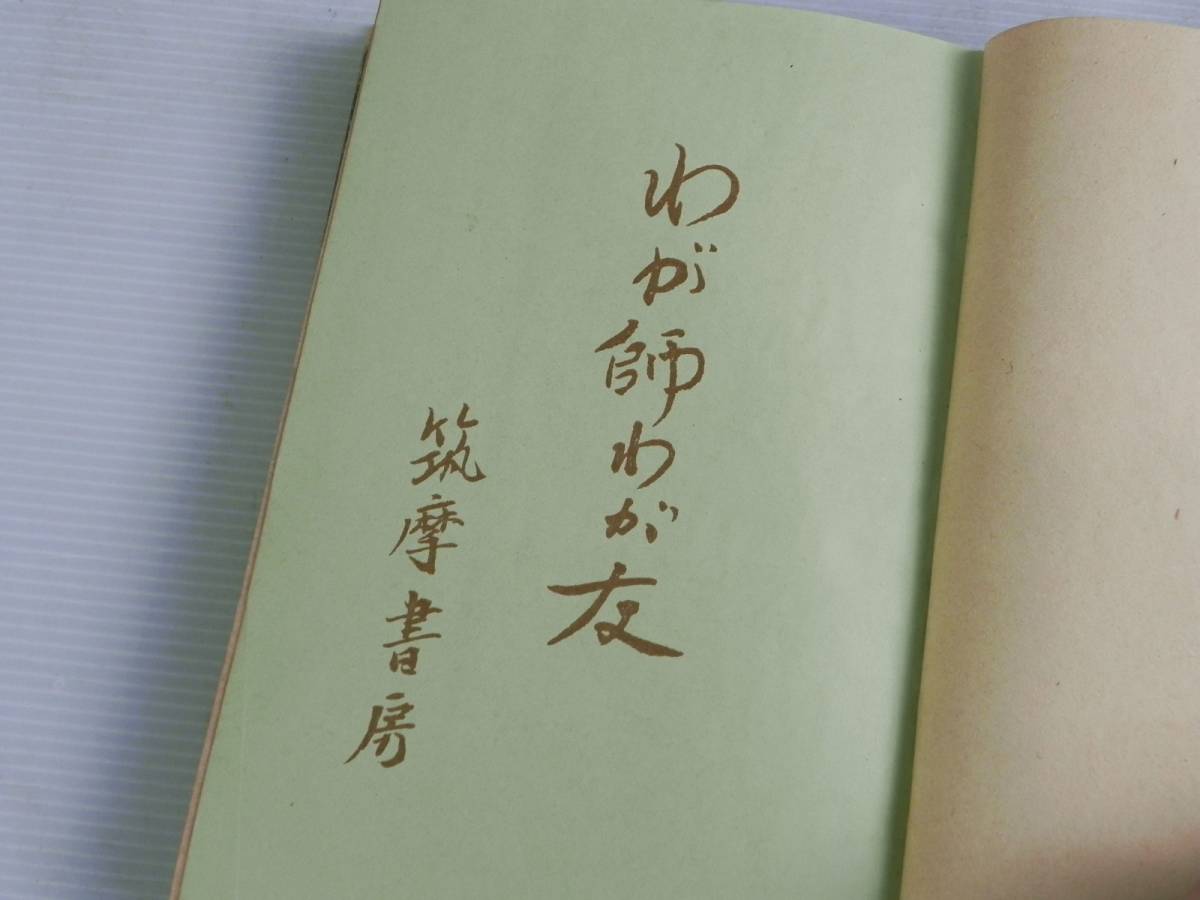 わが師わが友
筑摩書房